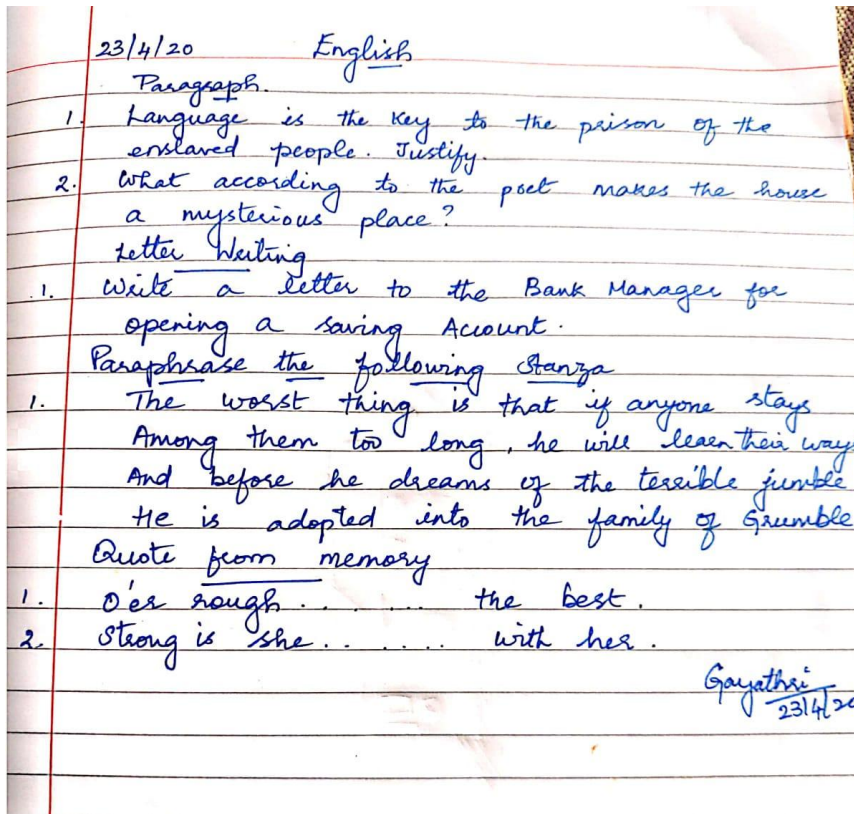 23/4/20 English
Paragraph.
1. Language is the key to the prison of the
enslaved people. Justify.
2. What according to the poet makes the house
a mysterious place?
Letter Writing
1. Write a letter to the Bank Manager for
opening a saving Account.
Paraphrase the following stanza
1. The worst thing is that if anyone stays
Among them too long, he will learn their ways
And before he dreams of the terrible jumble
He is adopted into the family of Grumble
Quote from memory
1. O'er rough . . . . . . . the best.
2. Strong is she . . . . . . . with her.
Gayathri
23/4/20